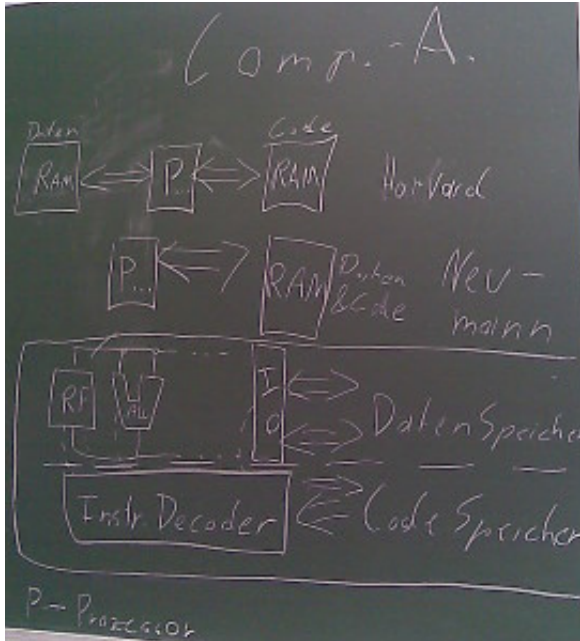 Comp.-A.
Daten Code
RAM P... RAM Harvard
P... RAM Daten & Code Neu-
mann
RF ALU IO Datenspeicher
Instr. Decoder Code Speicher
P - Prozessor